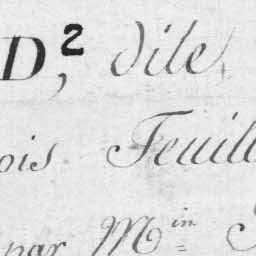 D,² dile
ois Feuill
par Min